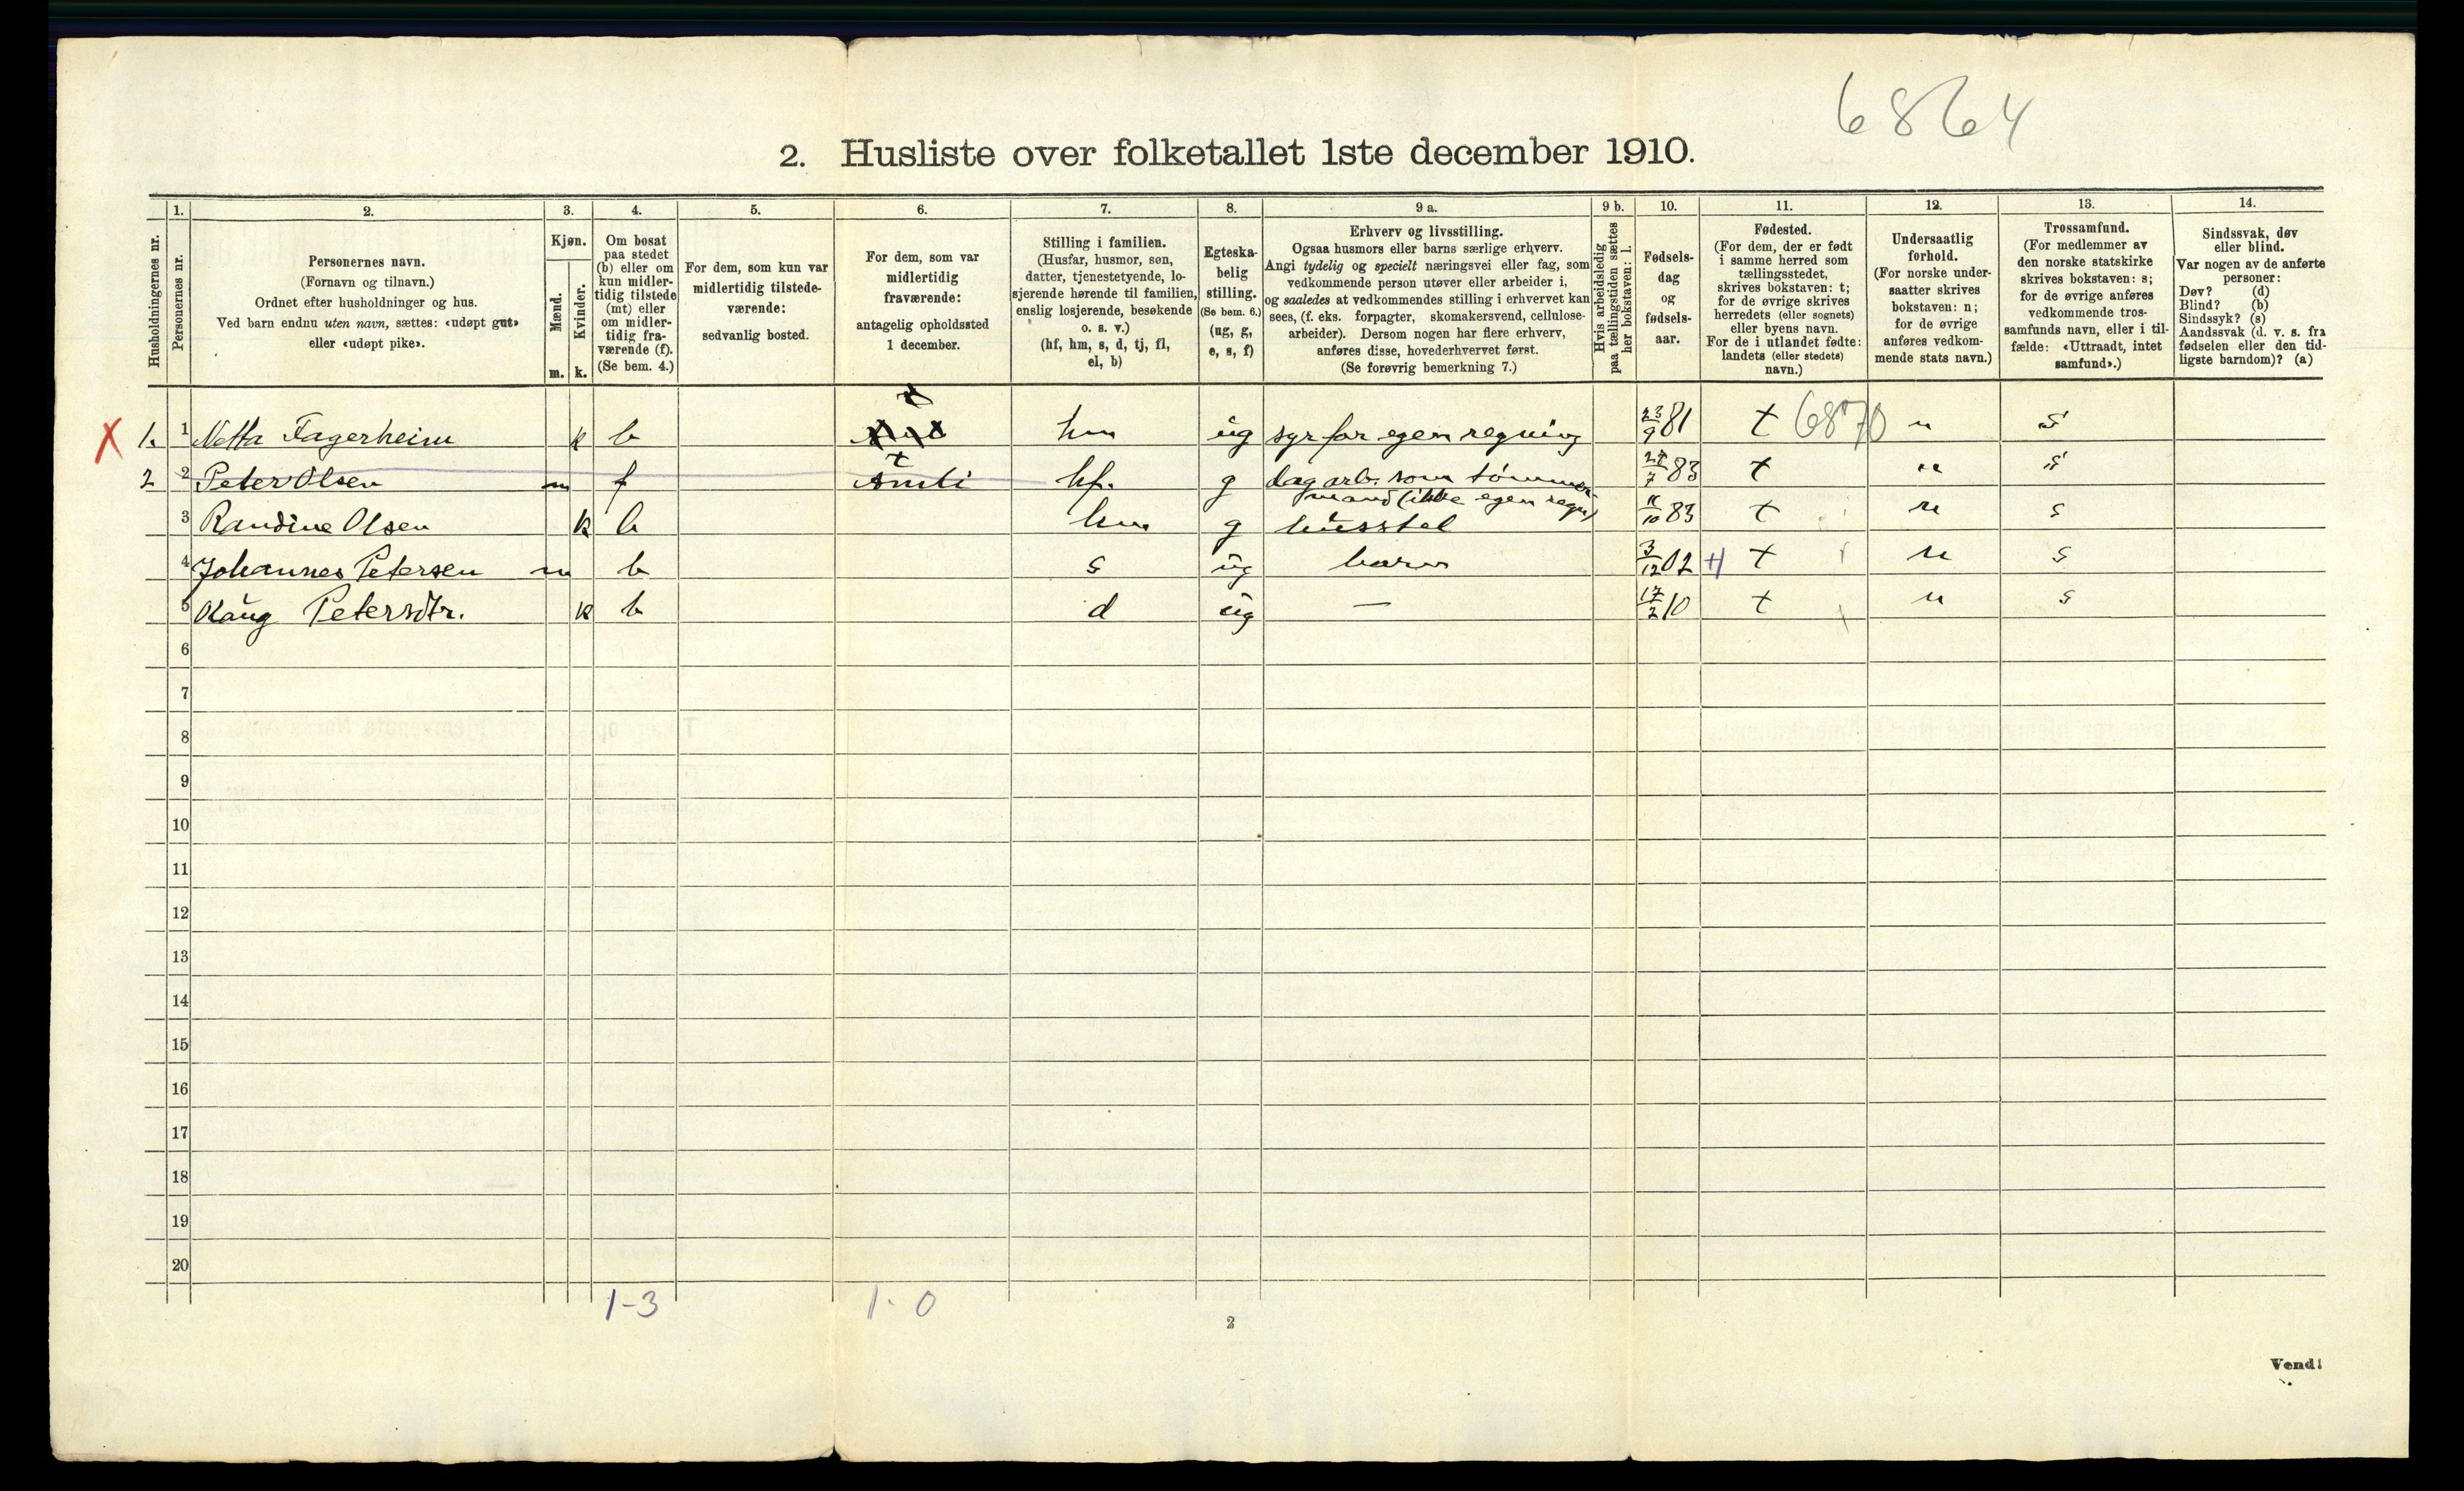 6864
2. Husliste over folketallet 1ste december 1910.
1. 2. 3. 4. 5. 6. 7. 8. 9 a. 9 b. 10. 11. 12. 13. 14.
Husholdningernes nr.
Personernes nr.
Personernes navn.
(Fornavn og tilnavn.)
Ordnet efter husholdninger og hus.
Ved barn endnu uten navn, sættes: «udøpt gut»
eller «udøpt pike».
Kjøn.
Mænd.
Kvinder.
m. k.
Om bosat
paa stedet
(b) eller om
kun midler-
tidig tilstede
(mt) eller
om midler-
tidig fra-
værende (f).
(Se bem. 4.)
For dem, som kun var
midlertidig tilstede-
værende:
sedvanlig bosted.
For dem, som var
midlertidig
fraværende:
antagelig opholdssted
1 december.
Stilling i familien.
(Husfar, husmor, søn,
datter, tjenestetyende, lo-
sjerende hørende til familien,
enslig losjerende, besøkende
o. s. v.)
(hf, hm, s, d, tj, fl,
el, b)
Egteska-
belig
stilling.
(Se bem. 6.)
(ug, g,
e, s, f)
Erhverv og livsstilling.
Ogsaa husmors eller barns særlige erhverv.
Angi tydelig og specielt næringsvei eller fag, som
vedkommende person utøver eller arbeider i,
og saaledes at vedkommendes stilling i erhvervet kan
sees, (f. eks. forpagter, skomakersvend, cellulose-
arbeider). Dersom nogen har flere erhverv,
anføres disse, hovederhvervet først.
(Se forøvrig bemerkning 7.)
Hvis arbeidsledig
paa tællingstiden sættes
her bokstaven: l.
Fødsels-
dag
og
fødsels-
aar.
Fødested.
(For dem, der er født
i samme herred som
tællingsstedet,
skrives bokstaven: t;
for de øvrige skrives
herredets (eller sognets)
eller byens navn.
For de i utlandet fødte:
landets (eller stedets)
navn.)
Undersaatlig
forhold.
(For norske under-
saatter skrives
bokstaven: n;
for de øvrige
anføres vedkom-
mende stats navn.)
Trossamfund.
(For medlemmer av
den norske statskirke
skrives bokstaven: s;
for de øvrige anføres
vedkommende tros-
samfunds navn, eller i til-
fælde: «Uttraadt, intet
samfund».)
Sindssvak, døv
eller blind.
Var nogen av de anførte
personer:
Døv? (d)
Blind? (b)
Sindssyk? (s)
Aandssvak (d. v. s. fra
fødselen eller den tid-
ligste barndom)? (a)
X 1. 1 Netta Fagerheim k b hm ug syr for egen regning 23/9 81 t 6870 n s
2 2 Peter Olsen m f t Amli hf. g dagarb. som tømmer- 83 t n s
mand (ikke egen regn)
3 Randine Olsen k b hm g husstel 11/10 83 t n s
4 Johannes Petersen m b s ug barn 3/12 02 t n s
5 Petersdtr. k b d ug — 17/2 10 t n s
6
7
8
9
10
11
12
13
14
15
16
17
18
19
20
1-3 1-0
2
Vend!